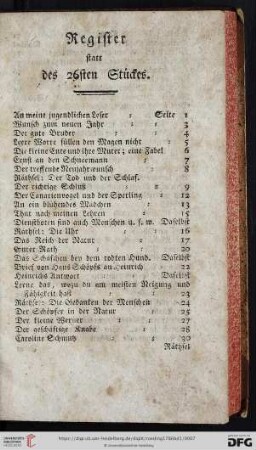 Register
statt
des 26sten Stückes.
An meine jugendlichen Leser : Seite 1
Wunsch zum neuen Jahr : : 3
Der gute Bruder : : 4
Leere Worte füllen den Magen nicht : 5
Die kleine Ente und ihre Mutter; eine Fabel 6
Ernst an den Schneemann : 7
Der treffende Neujahrwunsch : 8
Räthsel: Der Tod und der Schlaf.
Der richtige Schluß : : 9
Der Canarienvogel und der Sperling : 12
An ein blühendes Mädchen : 13
Thut nach meinen Lehren : 15
Dienstboten sind auch Menschen u. s. w. Daselbst
Räthsel: Die Uhr : : 16
Das Reich der Natur : : 17
Guter Rath : : 20
Das Schäfchen bey dem todten Hund. Daselbst
Brief von Hans Schöps an Heinrich : 22
Heinrichs Antwort : : Daselbst
Lerne das, wozu du am meisten Neigung und
Fähigkeit hast : : : 23
Räthsel: Die Gedanken der Menschen : 24
Der Schöpfer in der Natur : 25
Der kleine : : 27
Der geschäftige Knabe : : 28
Caroline Schmutz : : 30
Räthsel
© Universitätsbibliothek Heidelberg
gefördert durch die
DFG